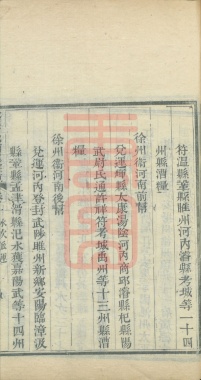 符溫縣鞏縣睢州河內濬縣考城等一十四
州縣漕糧
徐州衛河南前幫
兌運輝縣太康湯陰河內商邱濬縣杞縣陽
武尉氏通許祥符考城曲州等十三州縣漕
糧
徐州衛河南後幫
兌運河內登封武陟睢州新鄉安陽臨漳汲
縣鞏縣孟津滑縣汜水葉嘉陽武等十四州